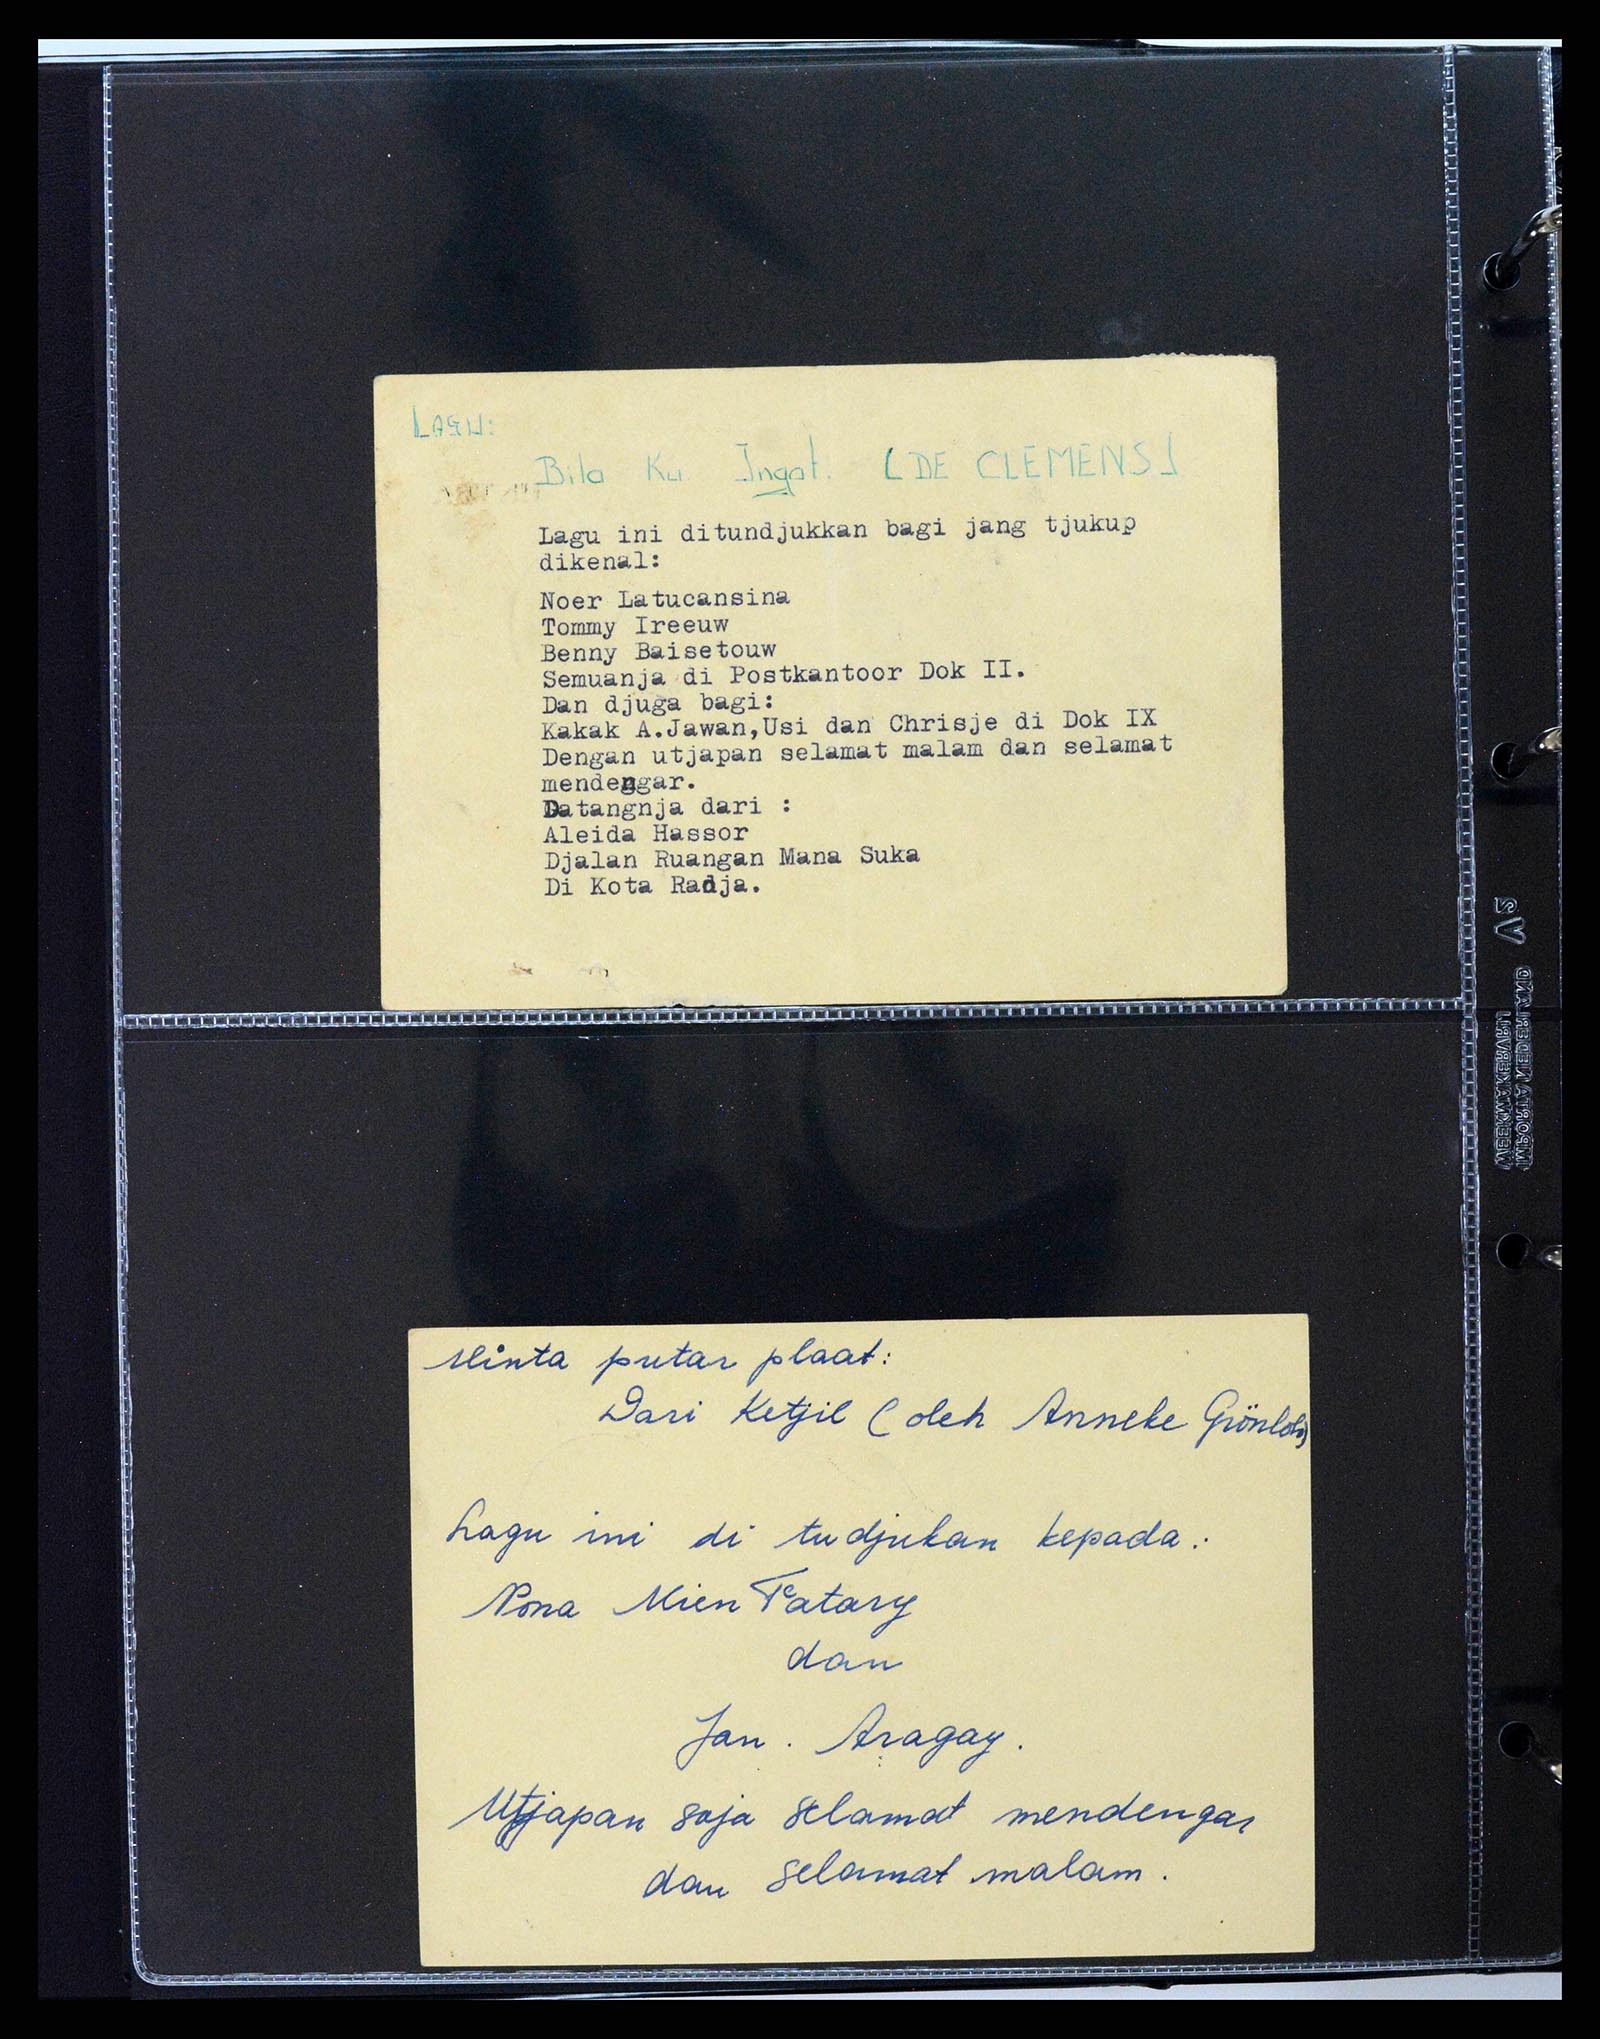 LAGU:
Bila Ku Ingat. (DE CLEMENS)
Lagu ini ditundjukkan bagi jang tjukup
dikenal:
Noer Latucansina
Tommy Ireeuw
Benny Baisetouw
Semuanja di Postkantoor Dok II.
Dan djuga bagi:
Kakak A.Jawan,Usi dan Chrisje di Dok IX
Dengan utjapan selamat malam dan selamat
mendengar.
Datangnja dari :
Aleida Hassor
Djalan Ruangan Mana Suka
Di Kota Radja.
Minta putar plaat:
Dari Ketjil (oleh Anneke Grönloh)
Lagu ini di tudjukan kepada:
Nona Mien Tatary
dan
Jan. Aragay.
Utjapan saja selamat mendengar
dan selamat malam.
IMPORTA NEDERLAND